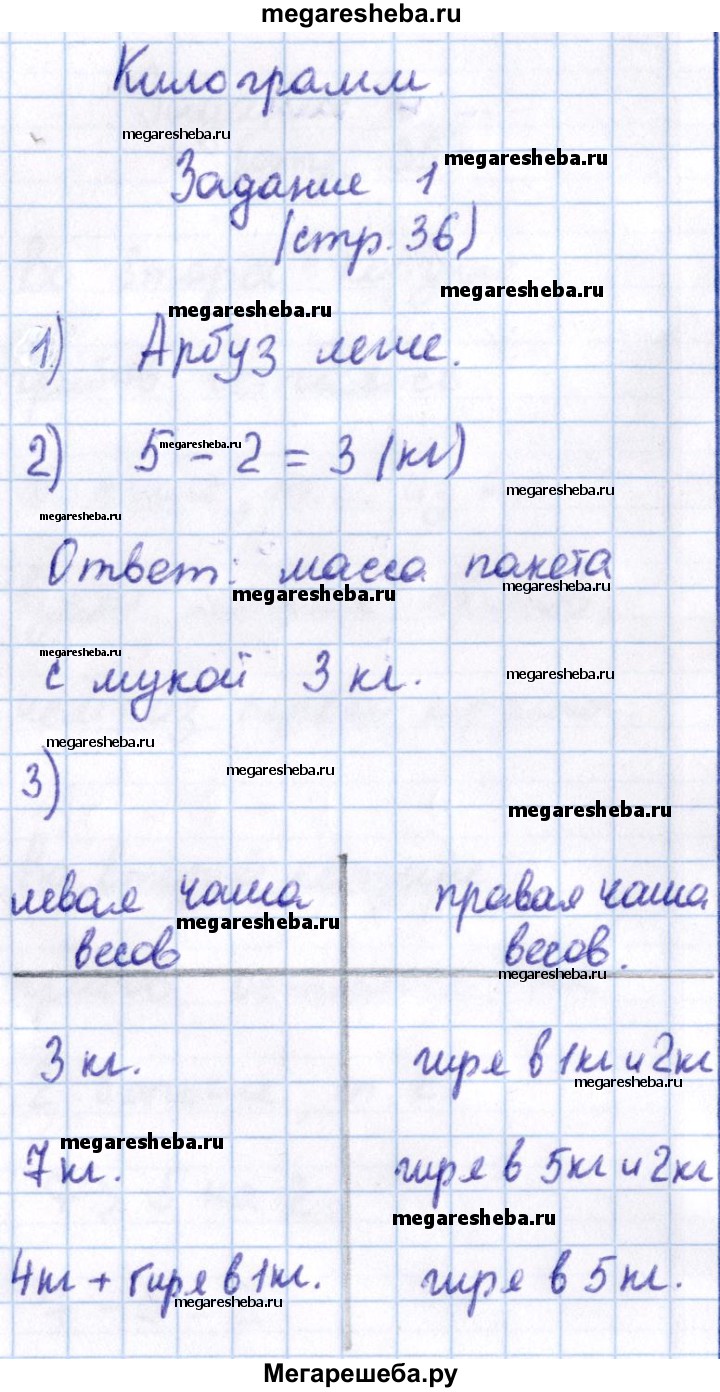 megaresheba.ru
Килограмм
megaresheba.ru
megaresheba.ru
Задание 1
(стр. 36)
megaresheba.ru
megaresheba.ru
1) Арбуз легче.
megaresheba.ru
2) 5 - 2 = 3 (кг)
megaresheba.ru
megaresheba.ru
Ответ: масса пакета
megaresheba.ru
megaresheba.ru
megaresheba.ru
с мукой 3 кг.
megaresheba.ru
megaresheba.ru
megaresheba.ru
3)
megaresheba.ru
левая чаша правая чаша
megaresheba.ru
весов весов.
megaresheba.ru
3 кг. гиря в 1кг и 2кг
megaresheba.ru
megaresheba.ru
7 кг. гиря в 5кг и 2кг
megaresheba.ru
4кг + гиря в 1кг. гиря в 5 кг.
megaresheba.ru
Мегарешеба.ру